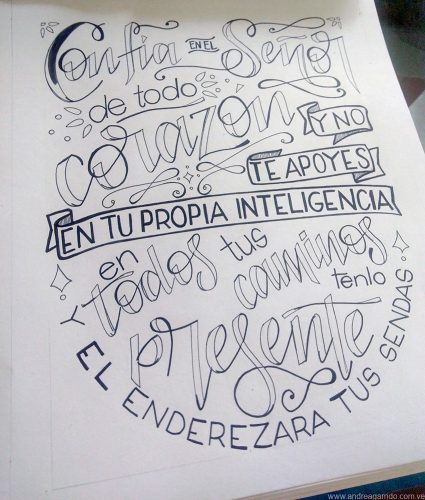 Confía EN EL Señor
de todo
corazon
Y NO
TE APOYES
EN TU PROPIA INTELIGENCIA
en todos tus caminos
tenlo
presente
Y EL ENDEREZARA TUS SENDAS
www.andreagarrido.com.ve